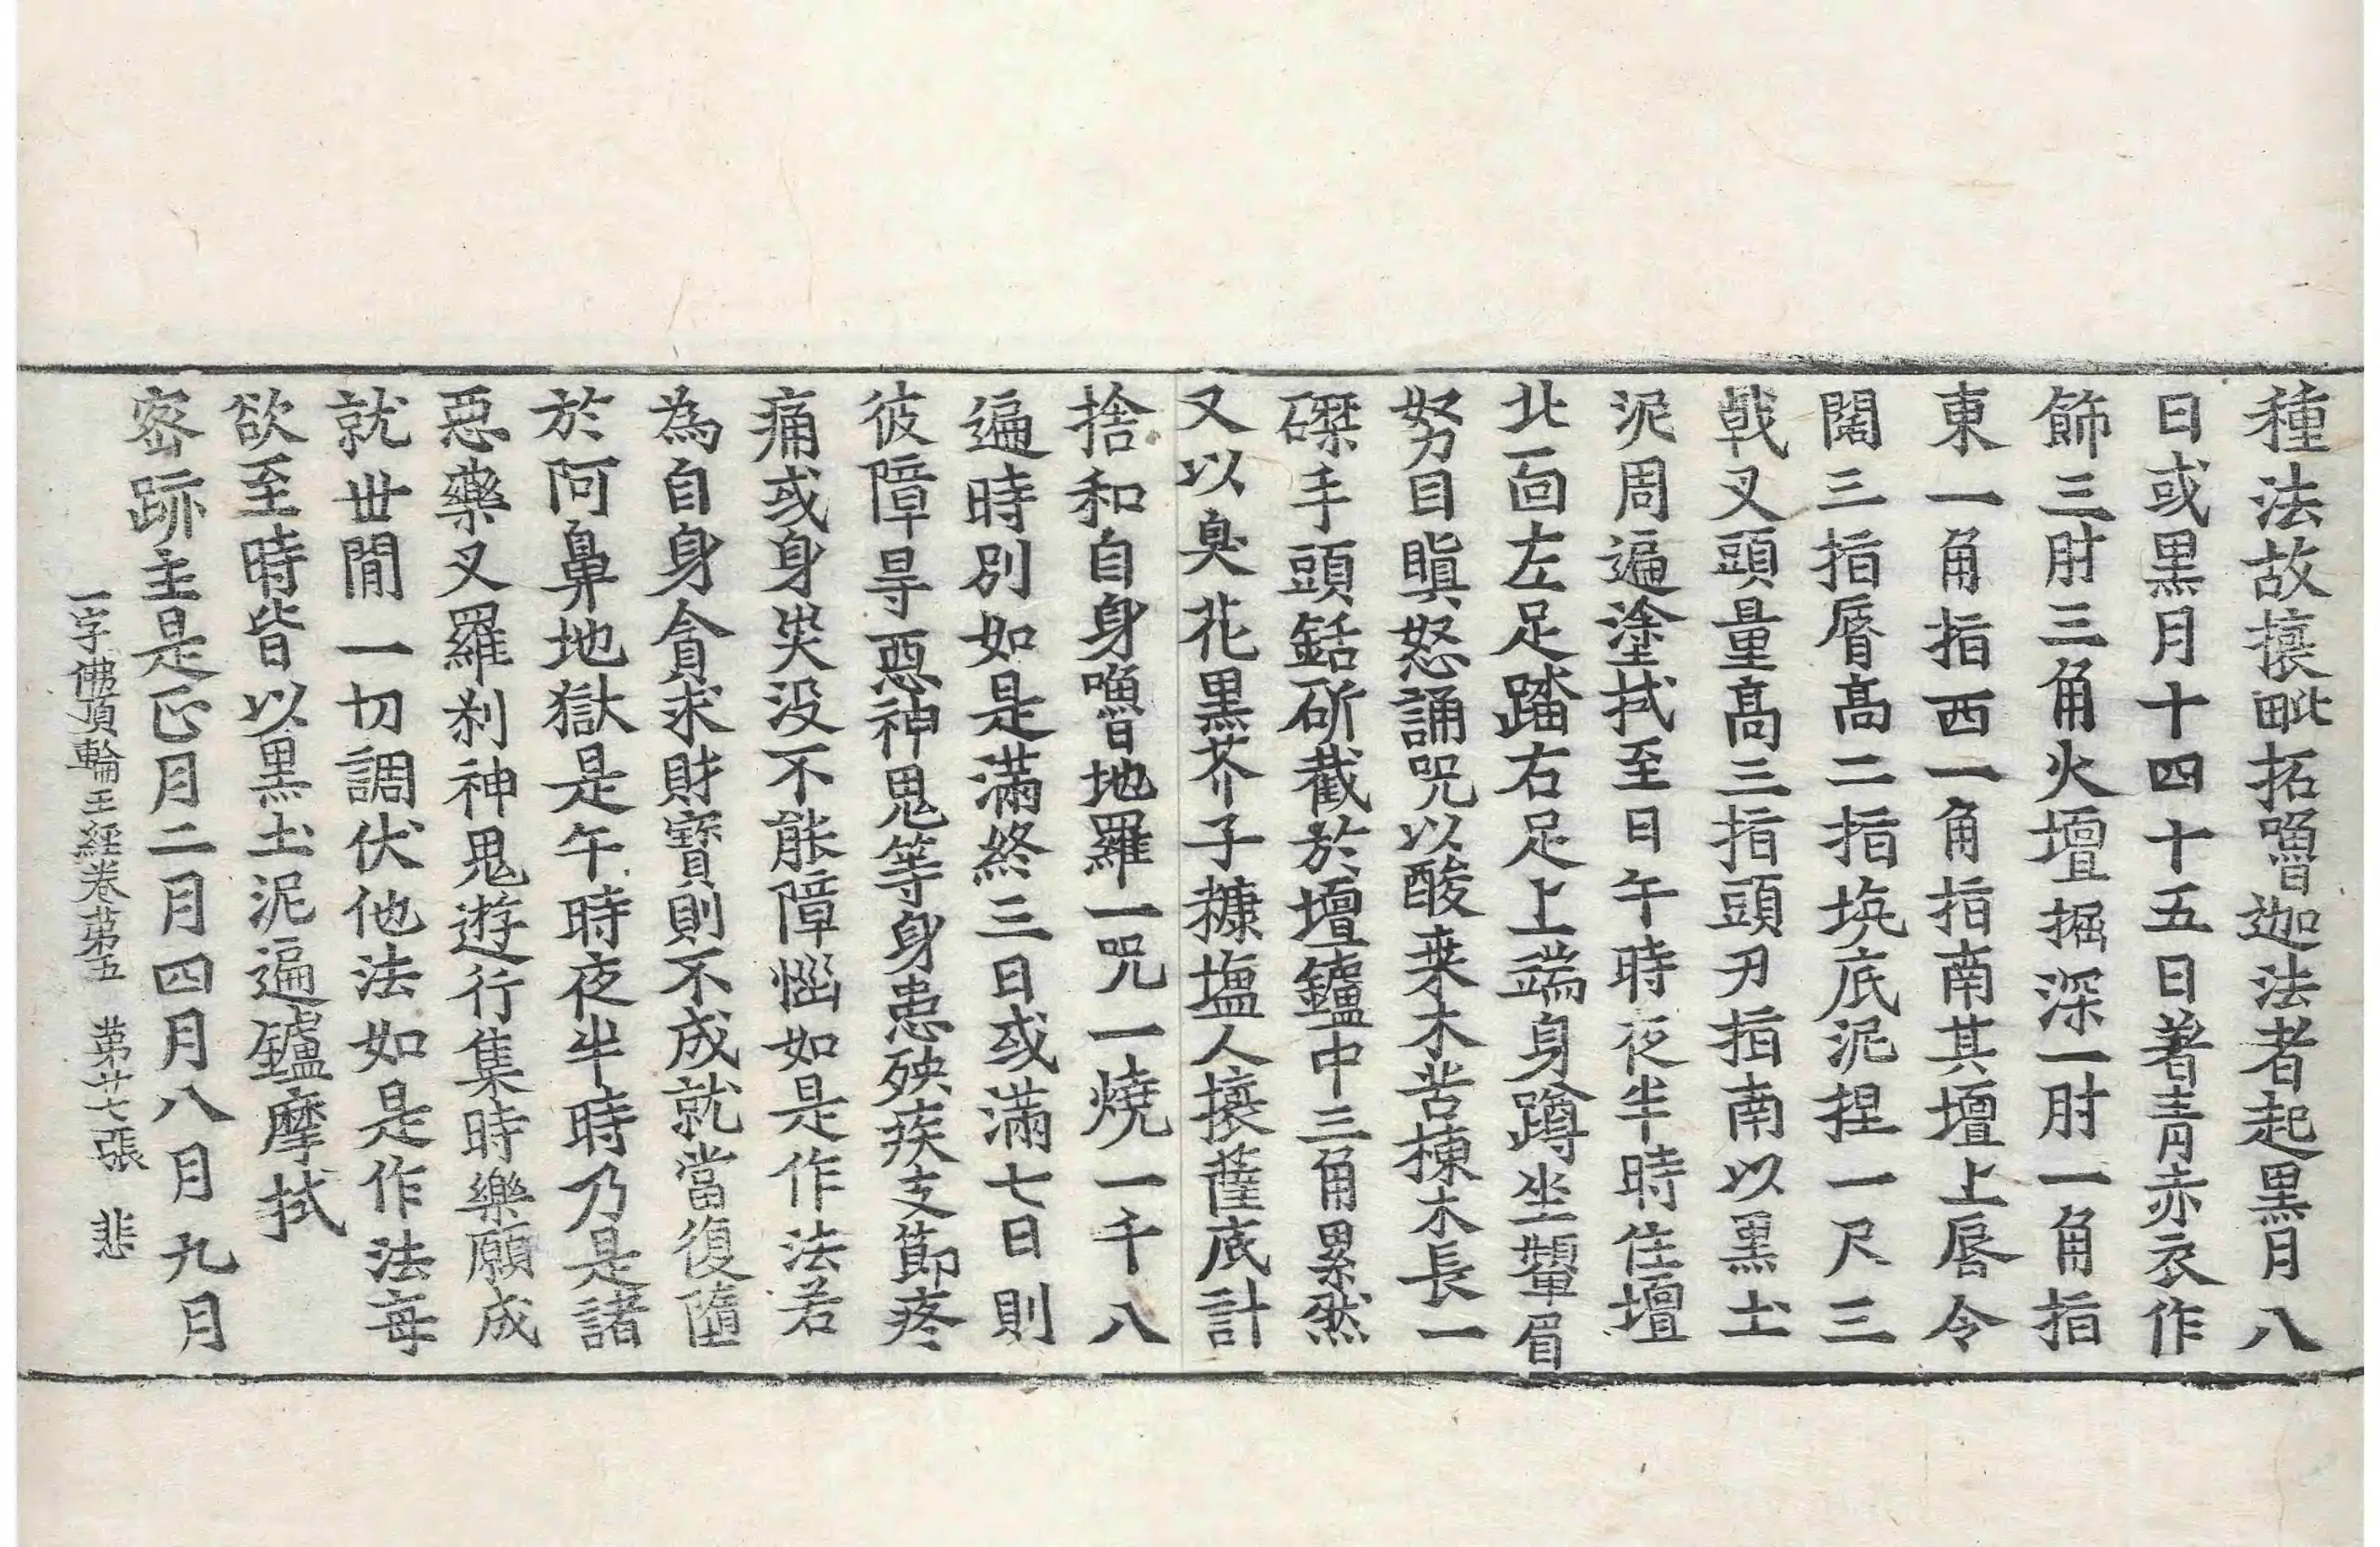 種法故攘毗拓嚕迦法者起黑月八
日或黑月十四十五日著青赤衣作
飾三肘三角火壇掘深一肘一角指
東一角指西一角指南其壇上唇令
闊三指脣高二指埦底泥捏一尺三
戟叉頭量高三指頭刃指南以黑土
泥周遍塗拭至日午時夜半時住壇
北面左足踏右足上端身蹲坐顰眉
努目瞋怒誦咒以酸棗木苦楝木長一
磔手頭銛斫截於壇鑪中三角累然
又以臭花黑芥子糠塩人攘薩底計
捨和自身嚕地羅一咒一燒一千八
遍時別如是滿終三日或滿七日則
彼障㝵惡神鬼等身患殃疾支節疼
痛或身喪没不能障惱如是作法若
為自身貪求財寶則不成就當復墮
於阿鼻地獄是午時夜半時乃是諸
惡藥叉羅刹神鬼遊行集時樂願成
就丗閒一切調伏他法如是作法每
欲至時皆以黑土泥遍鑪摩拭
密跡主是正月二月四月八月九月
一字佛頂輪王經卷第五　第廿七張　悲